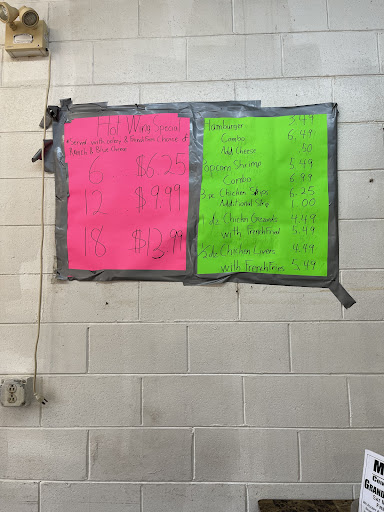 Hot Wing Special
Served with celery & Choice of
Ranch & Blue Cheese
6 $6.25
12 $9.99
18 $13.99
Hamburger 3.49
Combo 6.49
Add Cheese .50
Popcorn Shrimp 5.49
Combo 6.99
3 pc Chicken Strips 6.25
Additional Strip 1.00
Chicken Gizzards 4.49
with French Fries 5.49
Chicken Livers 4.49
with French Fries 5.49
M
GRAN